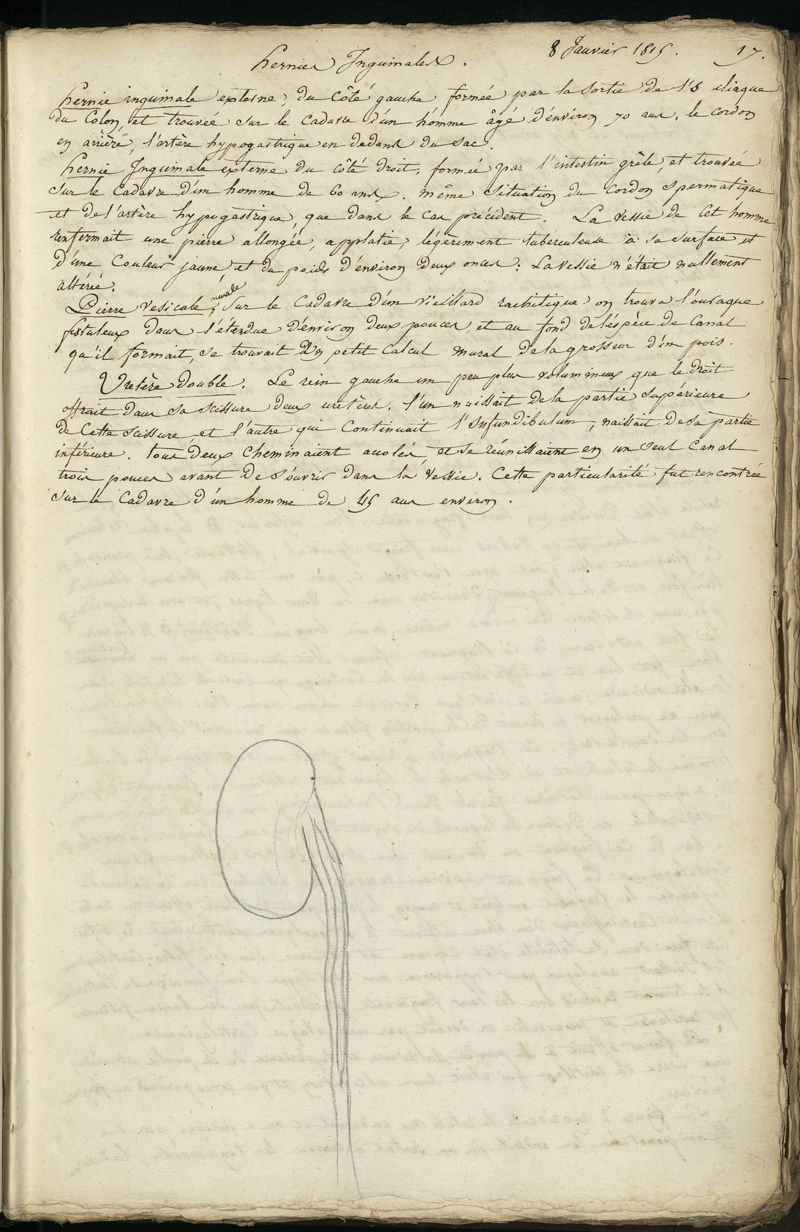 hernies Inguinales. 8 Janvier 1815. 17.
hernie inguinale externe, du côté gauche formée par la sortie de l'S iliaque
du Colon, et trouvée sur le cadavre d'un homme âgé d'environ 70 ans, le cordon
en arrière, l'artère hypogastrique en dedans du sac.
hernie Inguinale externe du côté droit, formée par l'intestin grêle, et trouvée
sur le cadavre d'un homme de 60 ans. même situation du cordon spermatique
et de l'artère hypogastrique, que dans le cas précédent. La vessie de cet homme
renfermait une pierre allongée, applatie, légèrement tuberculeuse à sa surface et
d'une couleur jaune, et du poids d'environ deux onces. La vessie n'était nullement
altérée.
Pierre vesicale murale, sur le cadavre d'un vieillard rachitique on trouva l'ouraque
fistuleux dans l'étendue d'environ deux pouces et au fond de l'espèce de canal
qu'il formait, se trouvait un petit calcul mural de la grosseur d'un pois.
Uretère double. Le rein gauche un peu plus volumineux que le droit
offrait dans sa scissure deux uretères. l'un naissait de la partie supérieure
de cette scissure, et l'autre que continuait l'infundibulum, naissait de sa partie
inférieure. tous deux cheminaient accolés, et se réunissaient en un seul canal
trois pouces avant de s'ouvrir dans la vessie. Cette particularité fut rencontrée
sur le cadavre d'un homme de 45 ans environ.